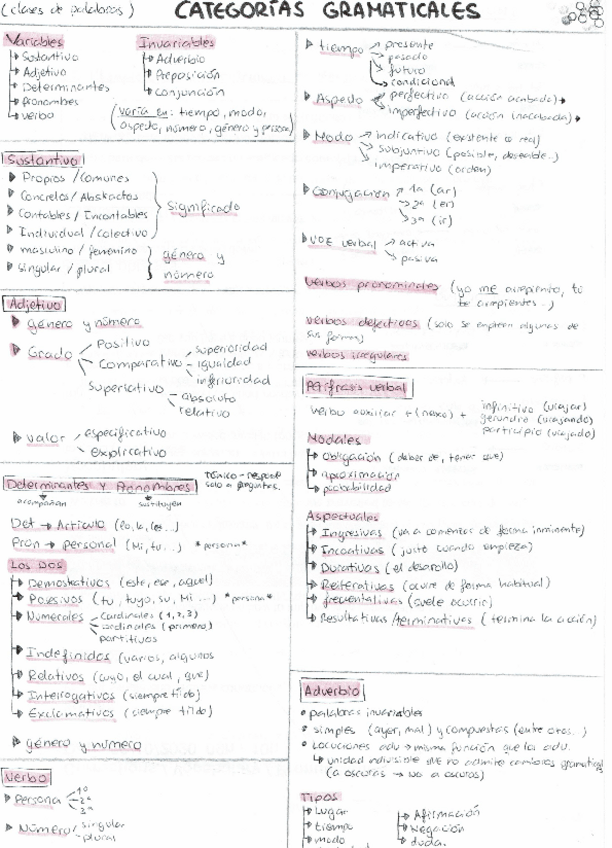 (clases de palabras) CATEGORÍAS GRAMATICALES
Variables
Sustantivo
Adjetivo
Determinantes
Pronombres
Verbo
Invariables
Adverbio
Preposición
Conjunción
(varía en: tiempo, modo,
aspecto, número, género y persona)
Sustantivo
Propios / Comunes
Concretos / Abstractos
Contables / Incontables
Individual / colectivo
significado
masculino / femenino
singular / plural
género y
número
Adjetivo
género y número
Grado
Positivo
Comparativo
superioridad
igualdad
inferioridad
Superlativo
absoluto
relativo
valor
especificativo
explicativo
Determinantes y Pronombres
acompañan
sustituyen
Tónico - responde
solo a preguntas.
Det → Artículo (lo, la, les...)
Pron → personal (Mi, tu...) *persona*
LOS DOS
Demostrativos (este, ese, aquel)
Posesivos (tu, tuyo, su, Mi ...) *persona*
Numerales
cardinales (1,2,3)
ordinales (primero)
partitivos
Indefinidos (varios, algunos
Relativos (cuyo, el cual, que)
Interrogativos (siempre tilde)
Exclamativos (siempre tilde)
género y número
Verbo
Persona
1ª
2ª
3ª
Número
singular
plural
tiempo
presente
pasado
futuro
condicional
Aspecto
perfectivo (acción acabada)
imperfectivo (acción inacabada)
Modo
indicativo (existente o real)
subjuntivo (posible, deseable...)
imperativo (orden)
Conjugación
1ª (ar)
2ª (er)
3ª (ir)
voz verbal
activa
pasiva
verbos pronominales (yo me arrepiento, tú
te arrepientes...)
verbos defectivos (solo se emplean algunas de
sus formas)
verbos irregulares
Perífrasis verbal
verbo auxiliar + (nexo) +
infinitivo (viajar)
gerundio (viajando)
participio (viajado)
Modales
Obligación (deber de, tener que)
aproximación
probabilidad
Aspectuales
Ingresivas (va a comenzar de forma inminente)
Incoativas (justo cuando empieza)
Durativas (el desarrollo)
Reiterativas (ocurre de forma habitual)
frecuentativas (suele ocurrir)
Resultativas /terminativas (termina la acción)
Adverbio
palabras invariables
simples (ayer, mal) y compuestas (entre otros..)
locuciones adv → misma función que los adv.
unidad indivisible que no admite cambios gramatical
(a oscuras → No a oscuros)
Tipos
Lugar
tiempo
modo
Afirmación
Negación
duda